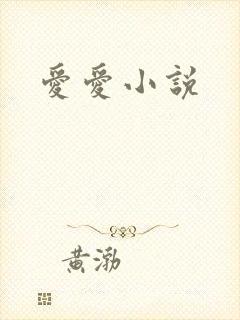 愛愛小說
黃渤